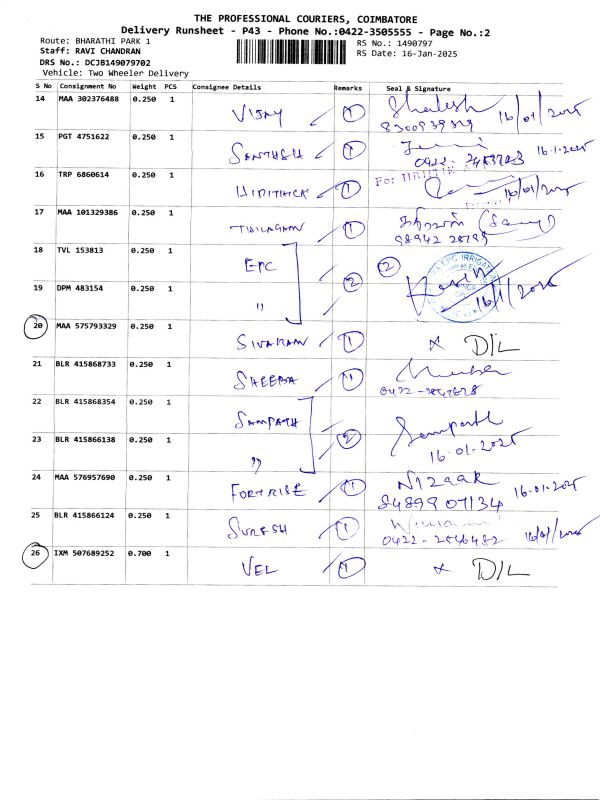 THE PROFESSIONAL COURIERS, COIMBATORE
Delivery Runsheet - P43 - Phone No.:0422-3505555 - Page No.:2
Route: BHARATHI PARK 1
RS No.: 1490797
Staff: RAVI CHANDRAN
RS Date: 16-Jan-2025
DRS No.: DCJB149079702
Vehicle: Two Wheeler Delivery
S No Consignment No Weight PCS Consignee Details Remarks Seal & Signature
14 MAA 302376488 0.250 1 VIJAY 1 16/01/2025
15 PGT 4751622 0.250 1 SANTHSH 1 16.1.2025
16 TRP 6860614 0.250 1 HIRITHICK 1 For HRITIK 16/01/2025
17 MAA 101329386 0.250 1 THILAGAM 1
98942 28795
18 TVL 153813 0.250 1 EPC 2 2 EPC IRRIGATION
19 DPM 483154 0.250 1 " 16/1/2025
20 MAA 575793329 0.250 1 SIVARAM 1 x D/L
21 BLR 415868733 0.250 1 SHEEBA 1
22 BLR 415868354 0.250 1 SAMPATH 2 Sampath
23 BLR 415866138 0.250 1 " 16-01-2025
24 MAA 576957690 0.250 1 FORTRISE 1 Nizaar 16-01-2025
84899 07134
25 BLR 415866124 0.250 1 SURESH 1
0422-2546482 16/01/2025
26 IXM 507689252 0.700 1 VEL 1 x D/L